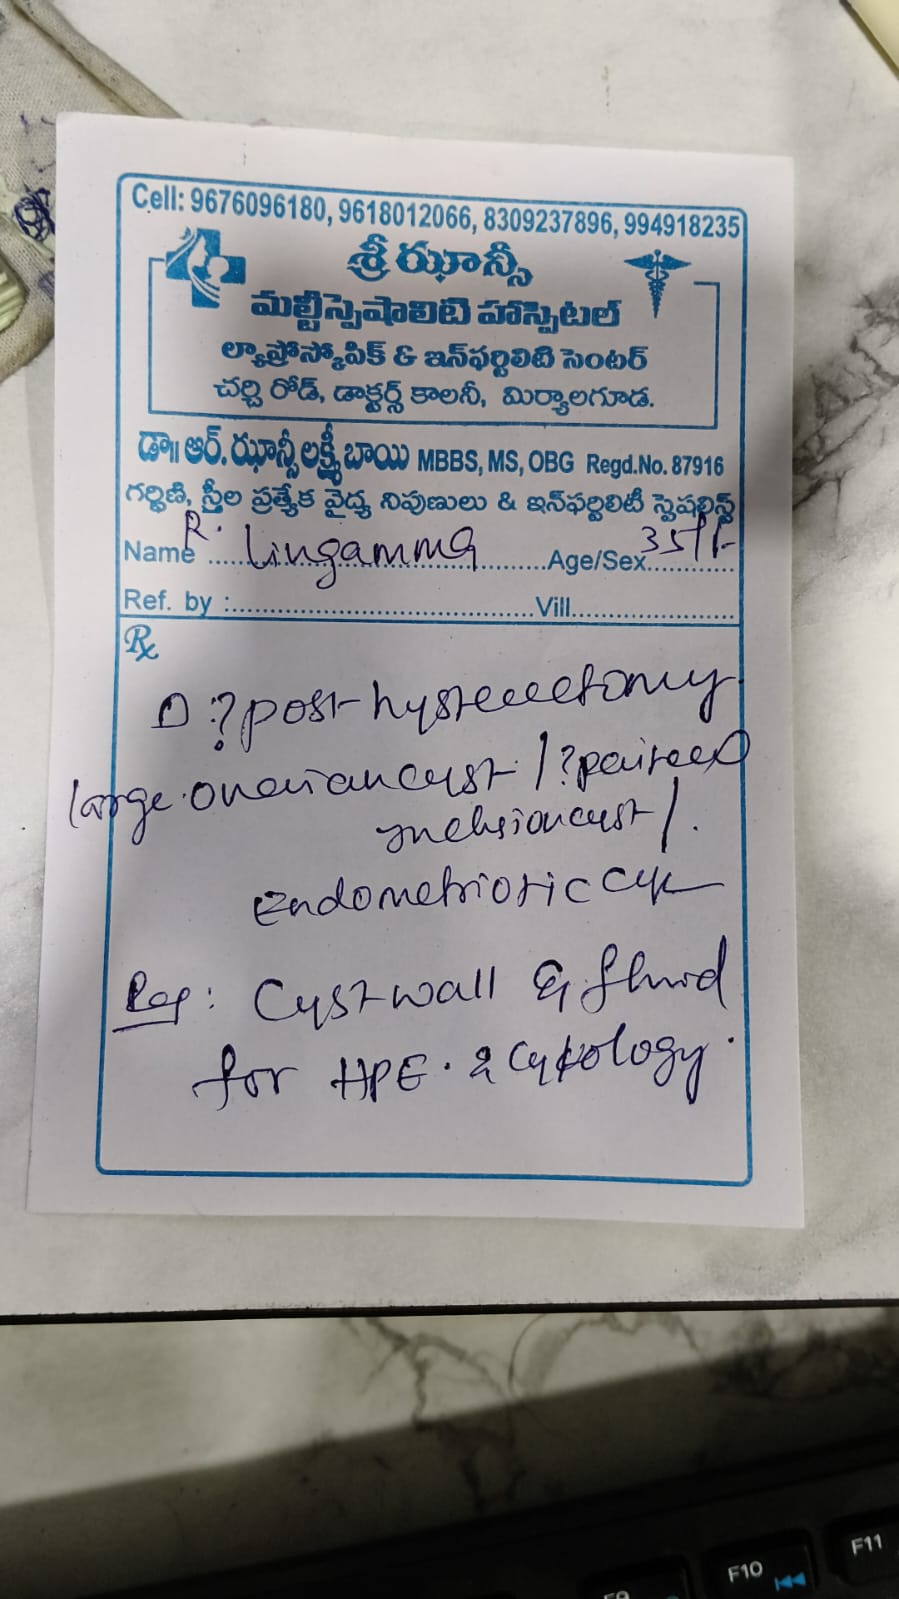 Cell: 9676096180, 9618012066, 8309237896, 994918235
శ్రీ ఝాన్సీ
మల్టీస్పెషాలిటి హాస్పిటల్
ల్యాప్రోస్కోపిక్ & ఇన్‌ఫర్టిలిటి సెంటర్
చర్చి రోడ్, డాక్టర్స్ కాలనీ, మిర్యాలగూడ.
డా॥ ఆర్. ఝాన్సీ లక్ష్మీ బాయి MBBS, MS, OBG Regd.No. 87916
గర్భిణి, స్త్రీల ప్రత్యేక వైద్య నిపుణులు & ఇన్‌ఫర్టిలిటీ స్పెషలిస్ట్
Name R. Lingamma Age/Sex 35/F
Ref. by : Vill
Rx
? post-hysterectomy
large ovarian cyst / ?
inclusion cyst /
Endometriotic cyst
Cyst wall & fluid
for HPE & Cytology.
F9 F10 F11